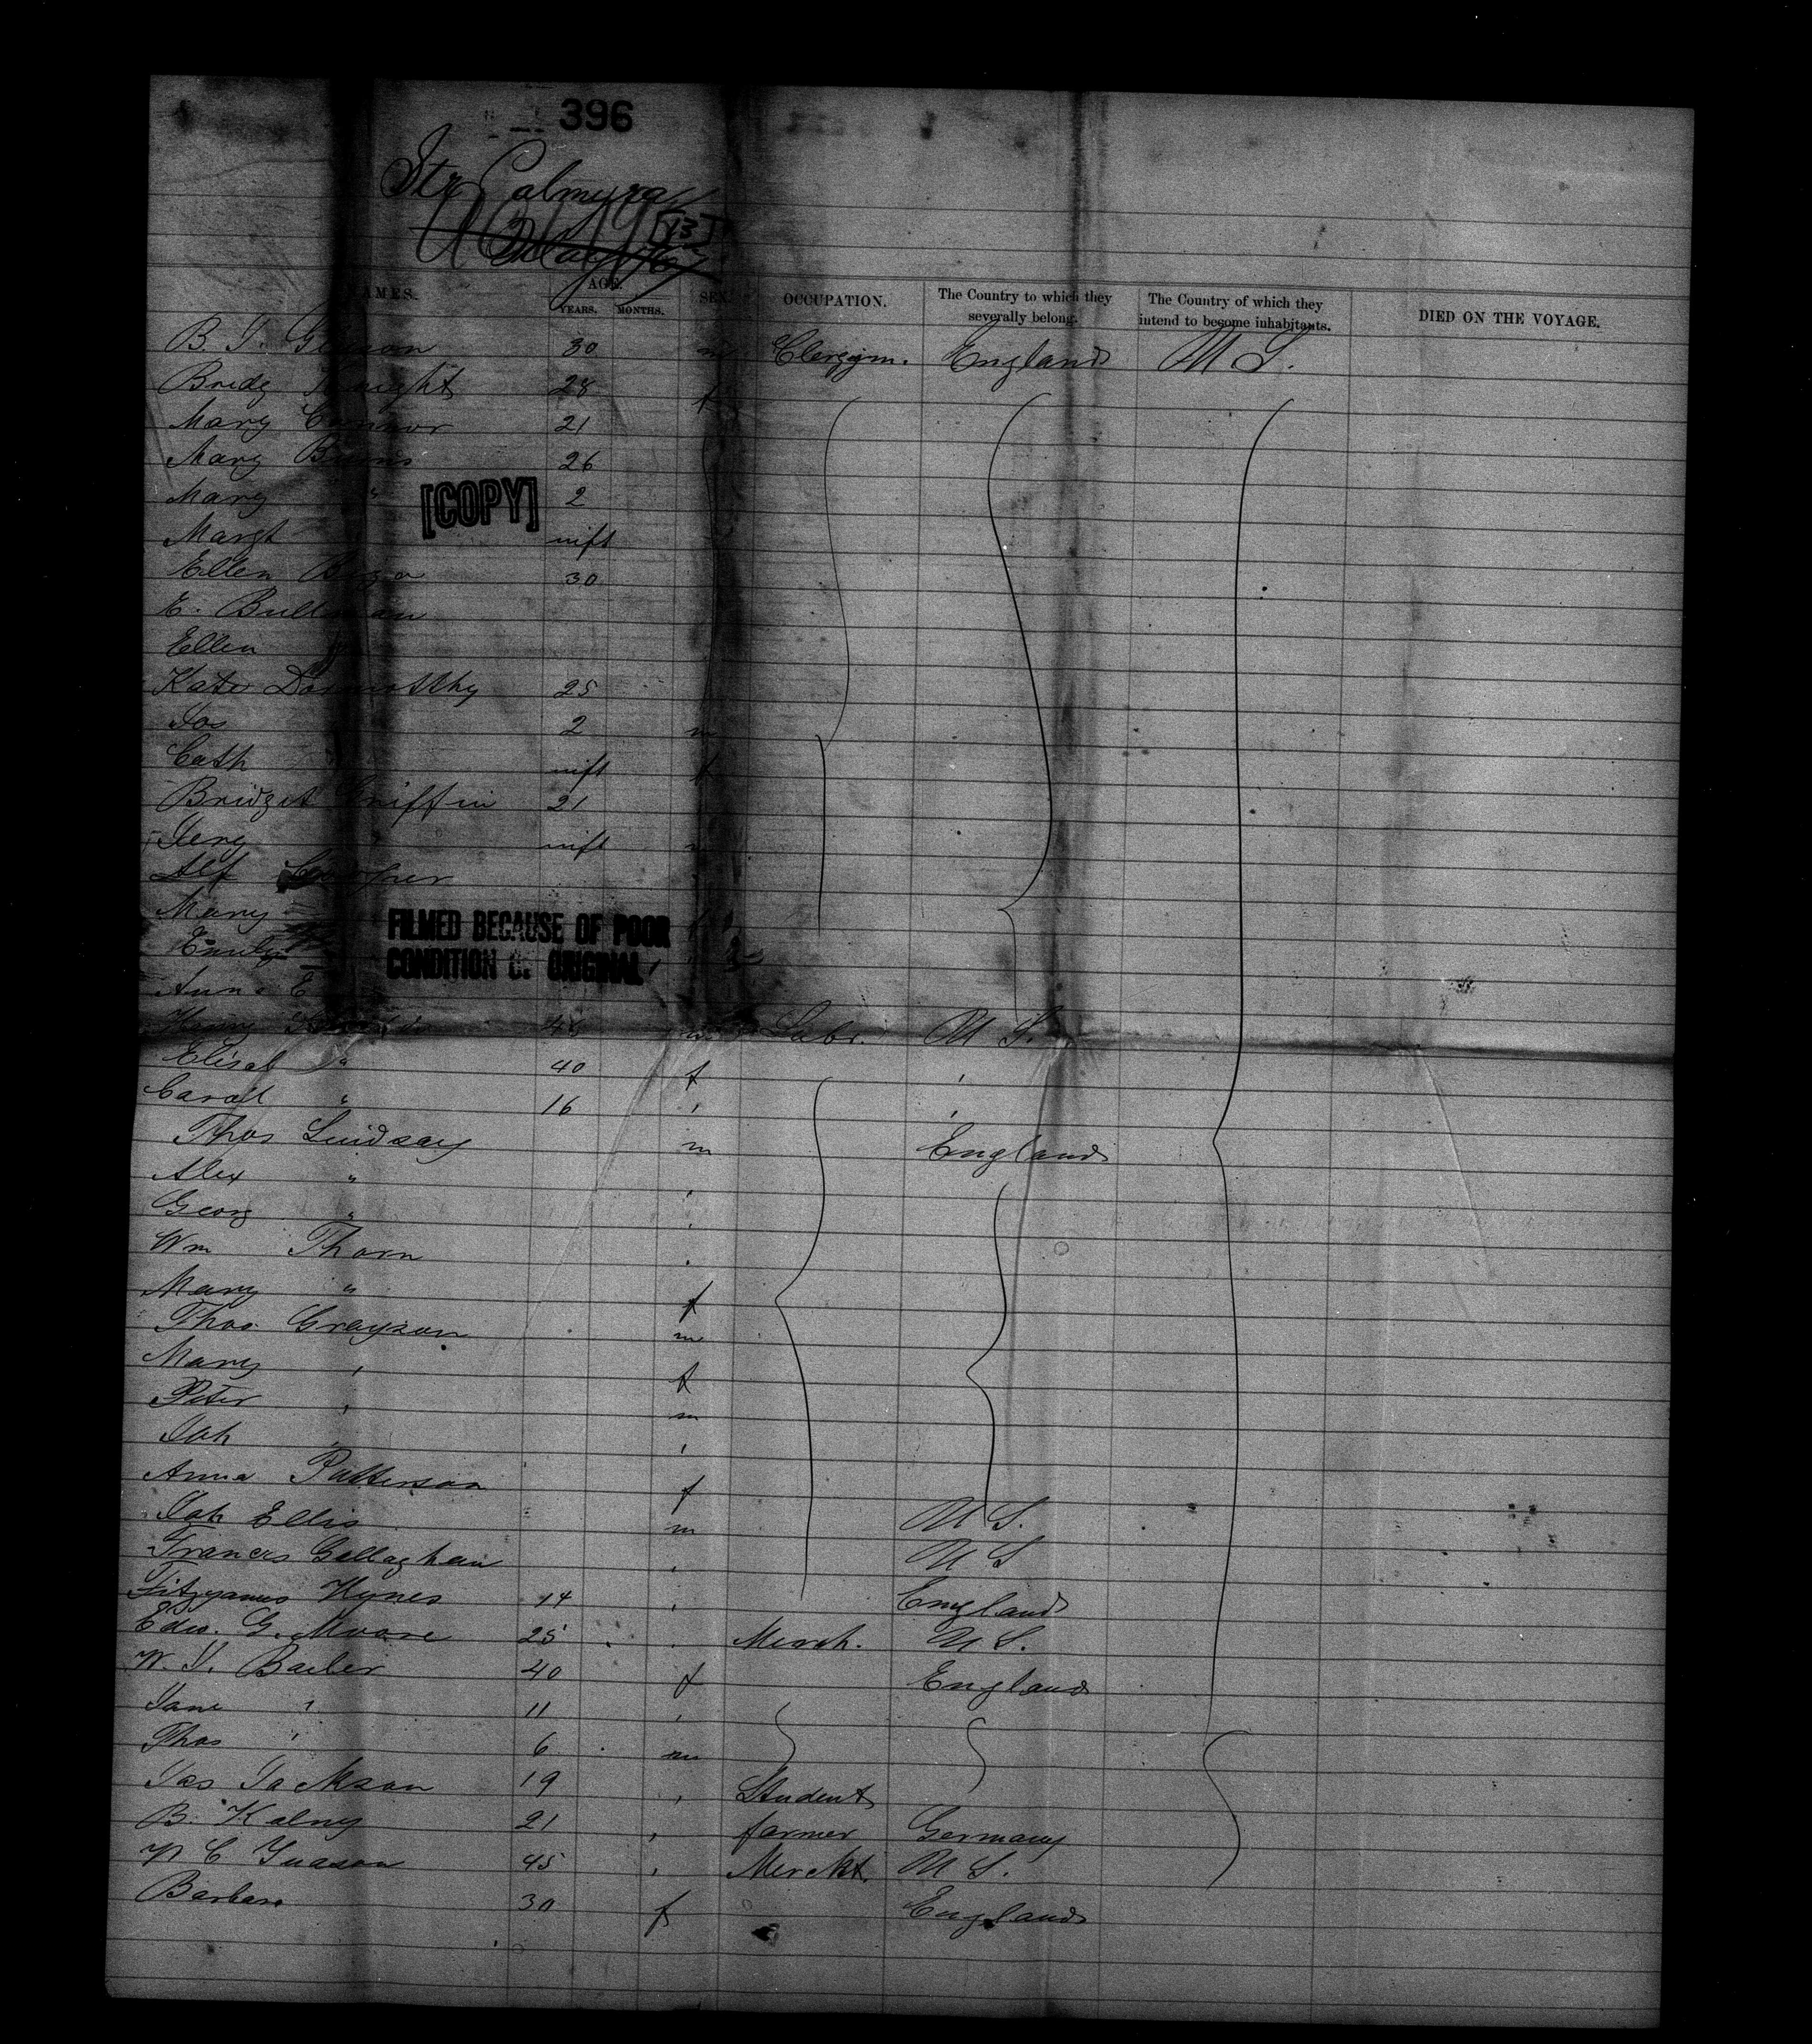 396
Str Palmyra
[13]
NAMES. AGE. YEARS. MONTHS. SEX. OCCUPATION. The Country to which they severally belong. The Country of which they intend to become inhabitants. DIED ON THE VOYAGE.
B. J. 30 m Clergym. England U S.
Bridg 28 f
Mary Connor 21
Mary Burns 26
Mary " 2
[COPY]
Margt inft
Ellen 30
E. Bullman
Ellen
Kate 25
Jos 2 m
Cath inft f
Bridget Griffin 21
Jery inft m
Alf
Mary
FILMED BECAUSE OF POOR
Emily
CONDITION OF ORIGINAL
Ann E
Henry 45 m Labr. U S.
Elisab " 40 f '
Caroll " 16 ' '
Thos Lindsay m England
Alex " '
Georg " '
Wm Thorn '
Mary " f
Thos. Grayson m
Mary ' f
Peter ' m
Joh '
Anna Patterson f
Joh Ellis m U S.
Francis Gallaghan ' U S
Fitzjames Hynes 14 ' England
Edw. G. Moore 25 ' Merch. U S.
W. J. Bailer 40 f England
Jane ' 11 '
Thos ' 6 m
Jas Jackson 19 ' Student
B. Kalny 21 ' farmer Germany
45 ' Merckt. U S.
Barbara 30 f England